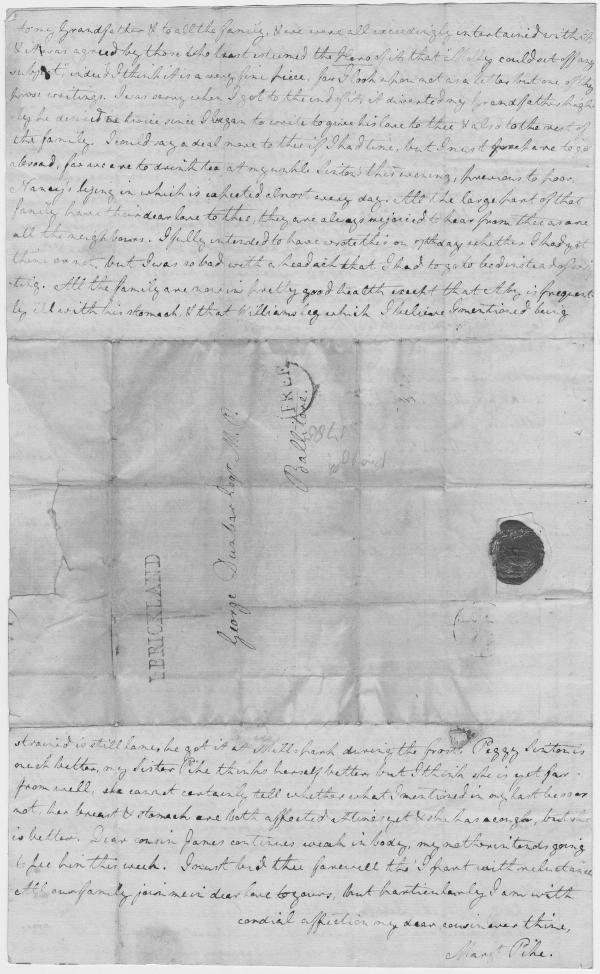 to my Grandfather & to all the family, & we were all exceedingly entertained with it,
& it was agreed by those who least esteemed the Hero of it, that Molly could set off any
subject, indeed I think it is a very fine piece, for I look upon not as a letter but one of thy
prose writings. I was sorry when I got to the end of it, it diverted my Grandfather high
ly he desired me twice since I began to write to give his love to thee & also to the rest of
the family. I could say a deal more to thee if I had time, but I must prepare to go
abroad, for we are to drink tea at my unkle Sinton's this evening, previous to poor
Nancy's lying in which is expected almost every day. All the large part of that
family have their dear love to thee, they are always rejoiced to hear from thee as are
all the neighbours. I fully intended to have wrote thee on 7th day whether I had got
thine or not, but I was so bad with a headach that I had to go to bed instead of wri
ting. All the family are now in pretty good health except that Aby is frequent
ly ill with his stomach, & that William's leg which I believe I mentioned being
FREE
Ballitore.
1788
George Dunbar Esqr. M.P.
LBRICKLAND
strained is still lame, he got it at Millpark during the frost. Peggy Sinton is
much better, my sister Pike thinks herself better but I think she is yet far
from well, she cannot certainly tell whether what I mentioned in my last be so or
not, her breast & stomach are both affected at times yet & she has a cough, but she
is better. Dear cousin James continues weak in body, my mother intends going
to see him this week. I must bid thee farewell tho' I part with reluctance
All our family join me in dear love to yours, but particularly I am with
cordial affection my dear cousin ever thine,
Margt. Pike.